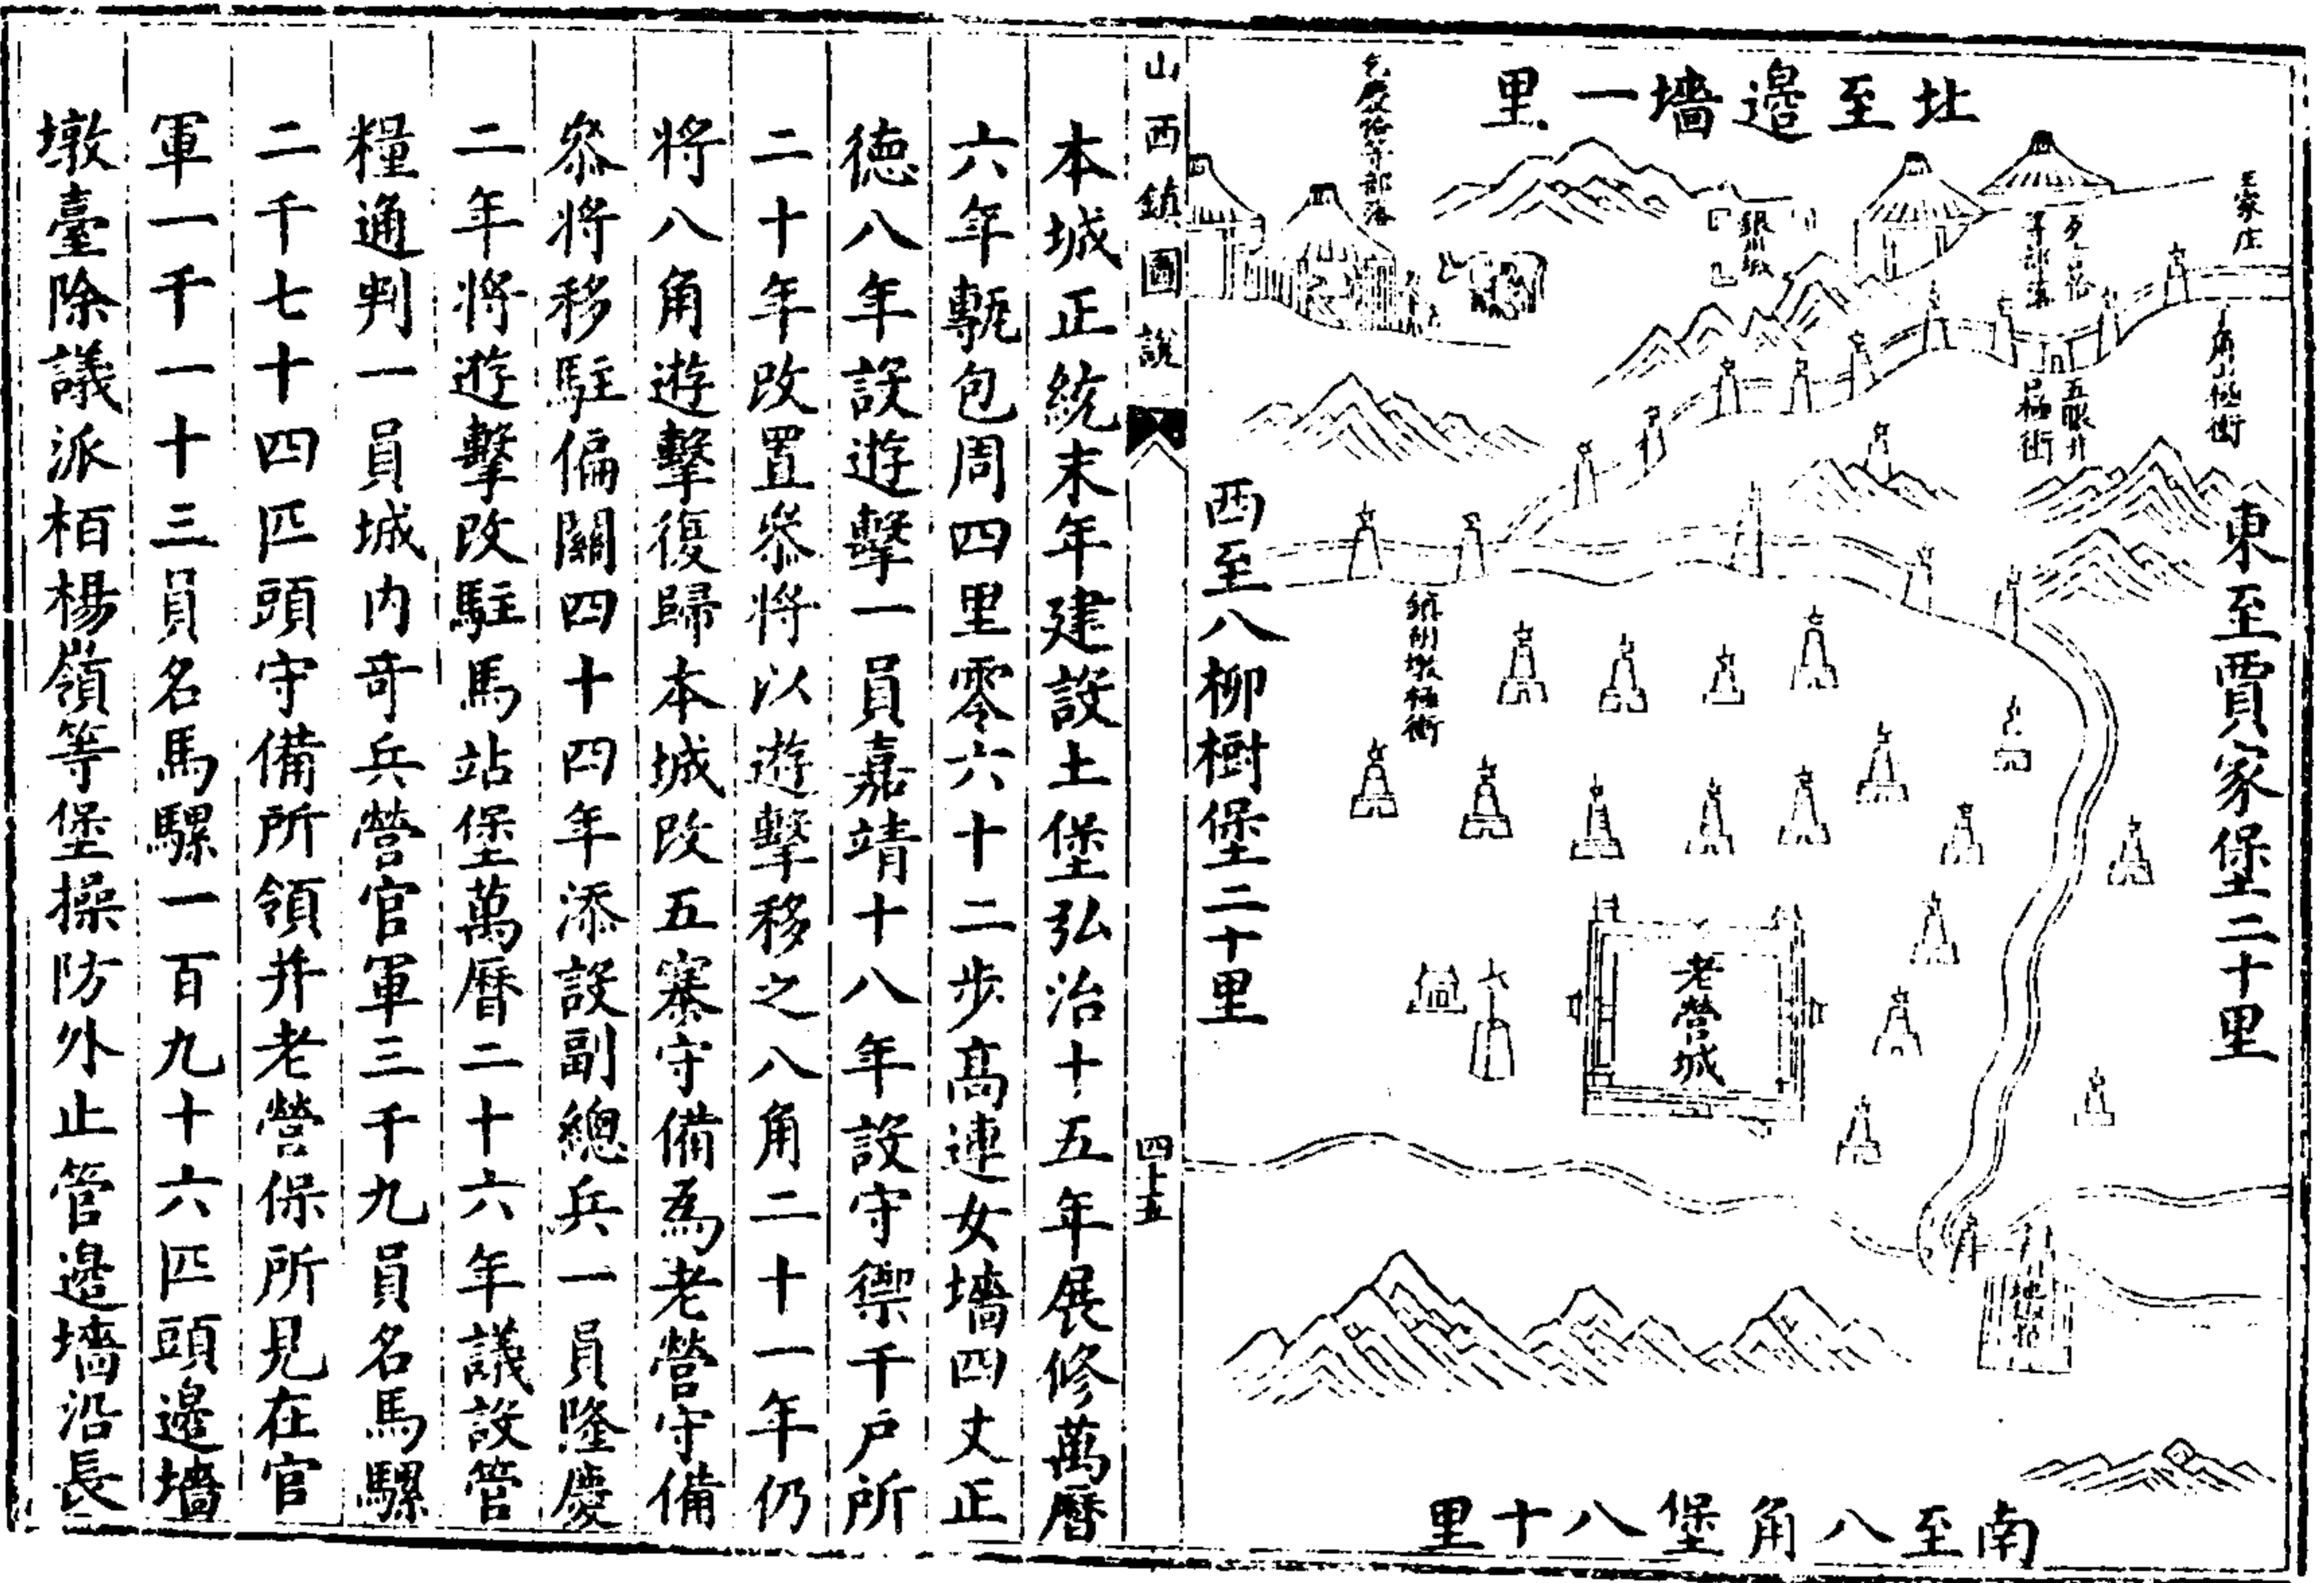 北至邊墻一里
王家庄
東至賈家堡二十里
五眼井
極衝
銀川城
等部落
鎮胡墩極衝
西至八柳樹堡二十里
老營城
南至八角堡八十里
山西鎮圖說
四十五
本城正統末年建設土堡弘治十五年展修萬曆
六年甎包周四里零六十二步高連女墻四丈正
德八年設遊擊一員嘉靖十八年設守禦千戶所
二十年改置叅將以遊擊移之八角二十一年仍
將八角遊擊復歸本城改五寨守備爲老營守備
叅將移駐偏關四十四年添設副總兵一員隆慶
二年將遊擊改駐馬站堡萬曆二十六年議設管
糧通判一員城内竒兵營官軍三千九員名馬騾
二千七十四匹頭守備所領并老營保所見在官
軍一千一十三員名馬騾一百九十六匹頭邊墻
墩臺除議派栢楊嶺等堡操防外止管邊墻沿長